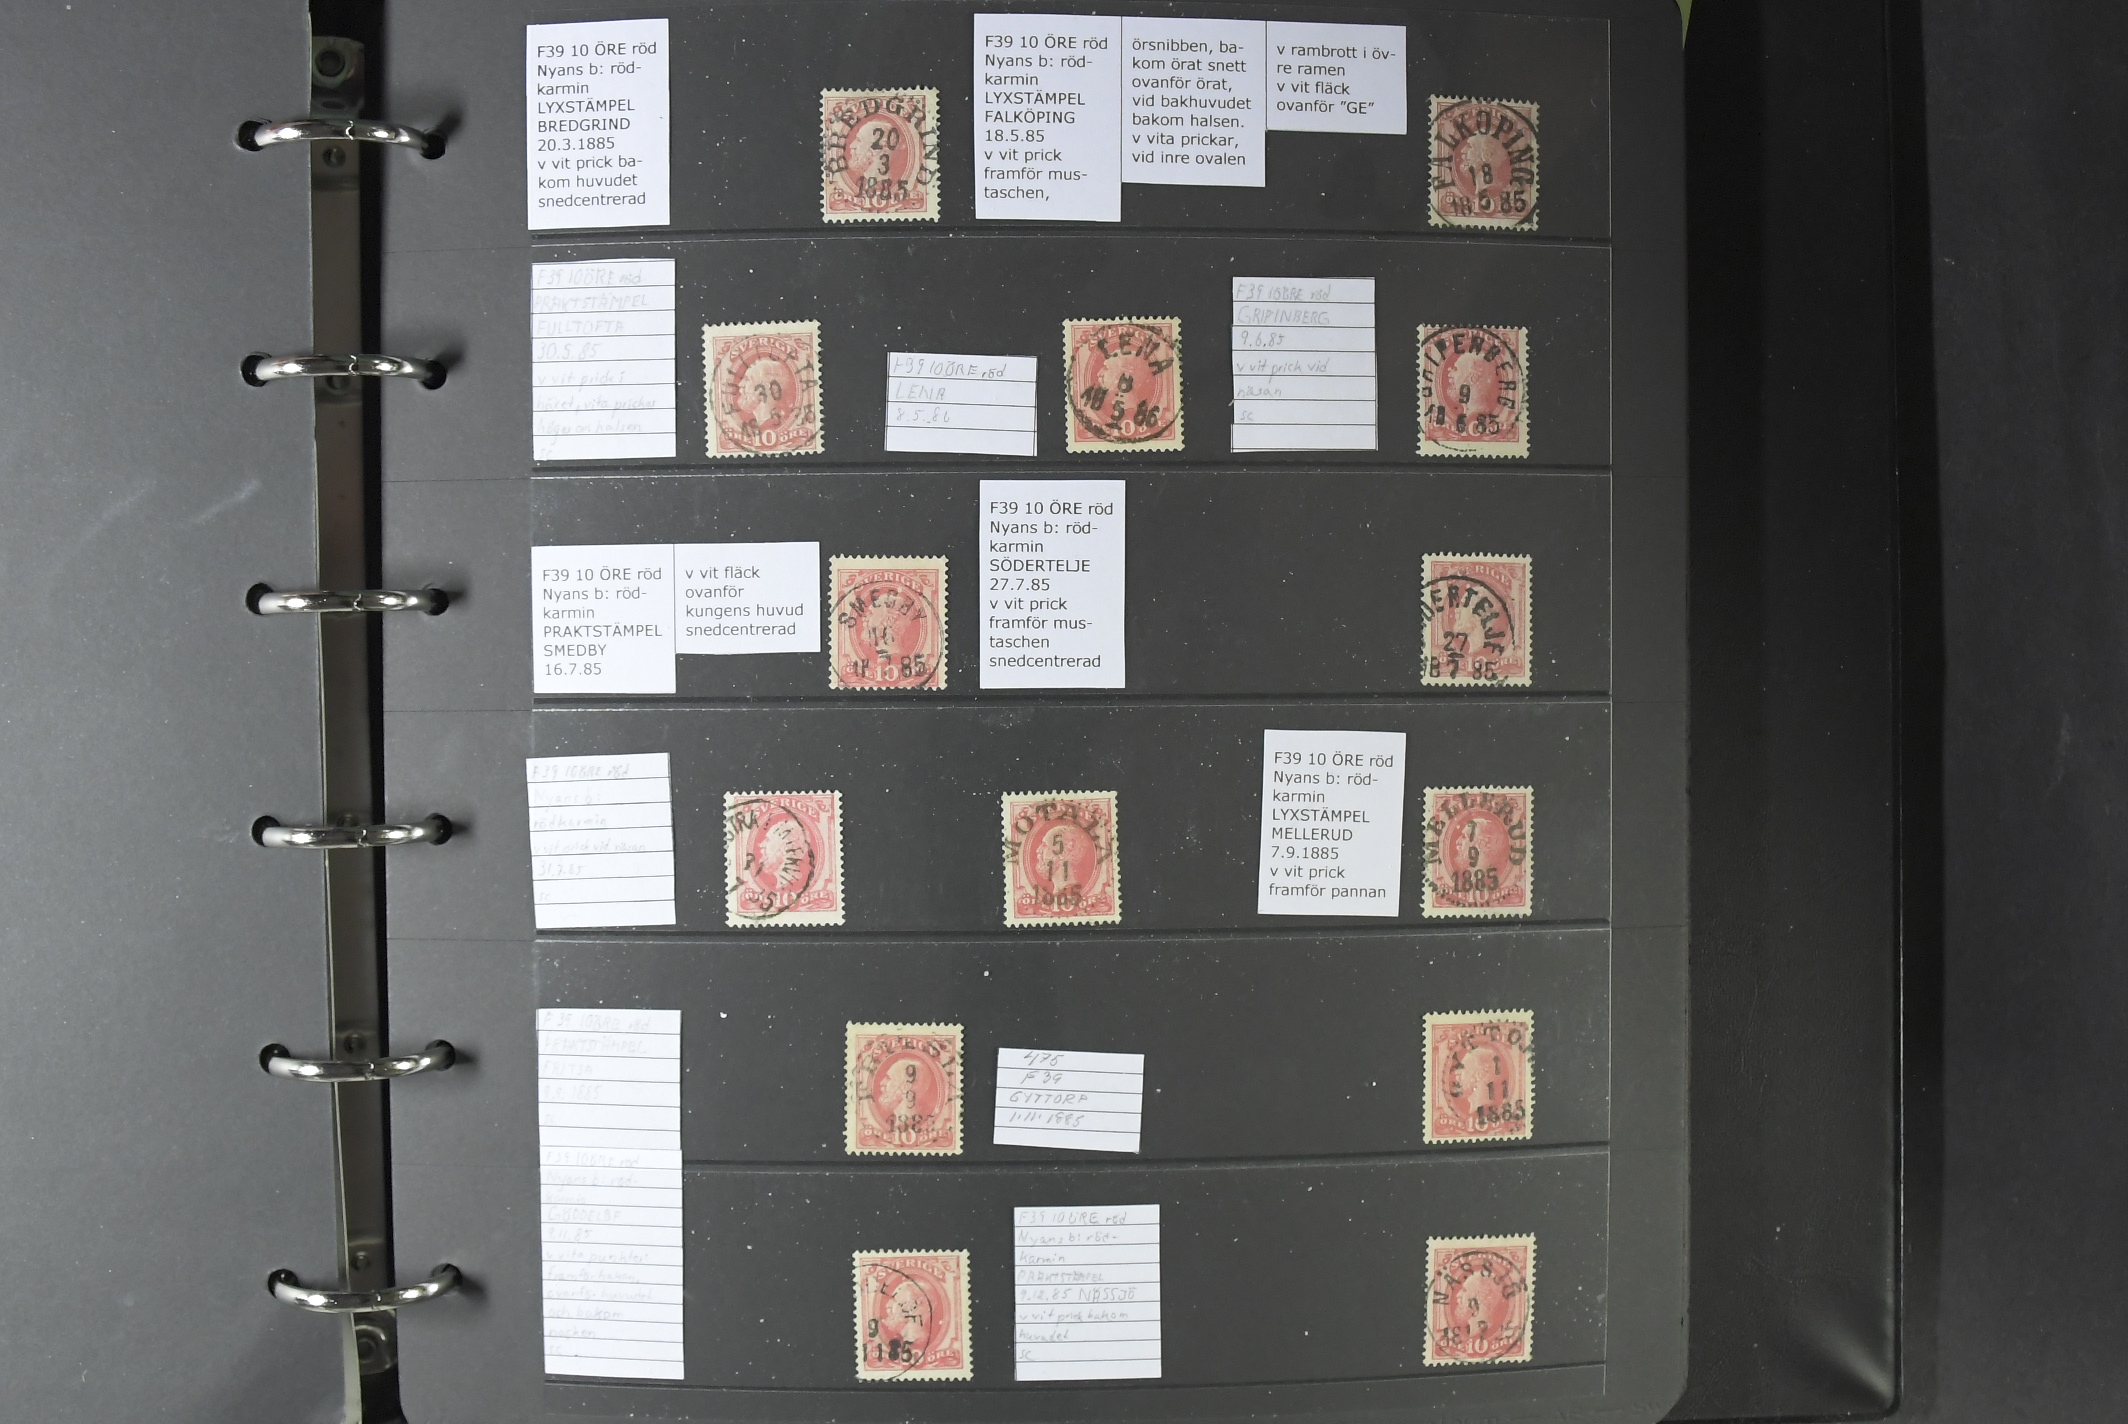 F39 10 ÖRE röd
Nyans b: röd-
karmin
LYXSTÄMPEL
BREDGRIND
20.3.1885
v vit prick ba-
kom huvudet
snedcentrerad
BREDGRIND
20
3
1885
F39 10 ÖRE röd
Nyans b: röd-
karmin
LYXSTÄMPEL
FALKÖPING
18.5.85
v vit prick
framför mus-
taschen,
örsnibben, ba-
kom örat snett
ovanför örat,
vid bakhuvudet
bakom halsen.
v vita prickar,
vid inre ovalen
v rambrott i öv-
re ramen
v vit fläck
ovanför "GE"
FALKÖPING
18
18 5 85
F39 10 ÖRE röd
PRAKTSTÄMPEL
FULLTOFTA
30.5.85
v vit prick i
håret, vita prickar
höger om halsen
sc
SVERIGE
30
ÖRE 10 ÖRE
F39 10 ÖRE röd
LENA
8.5.86
LENA
8
18 5 86
F39 10 ÖRE röd
GRIPINBERG
9.6.85
v vit prick vid
näsan
sc
GRIPENBERG
9
18 6 85
F39 10 ÖRE röd
Nyans b: röd-
karmin
PRAKTSTÄMPEL
SMEDBY
16.7.85
v vit fläck
ovanför
kungens huvud
snedcentrerad
SVERIGE
SMEDBY
16
18 7 85
10
F39 10 ÖRE röd
Nyans b: röd-
karmin
SÖDERTELJE
27.7.85
v vit prick
framför mus-
taschen
snedcentrerad
SVERIGE
DERTELJE
27
18 7 85
F39 10 ÖRE röd
Nyans b:
rödkarmin
v vit prick vid näsan
31.7.85
sc
SVERIGE
31
10 ÖRE
MOTALA
5
11
1885
F39 10 ÖRE röd
Nyans b: röd-
karmin
LYXSTÄMPEL
MELLERUD
7.9.1885
v vit prick
framför pannan
MELLERUD
7
9
1885
10
F39 10 ÖRE röd
PRAKTSTÄMPEL
9.9.1885
sc
9
9
1885
10
475
F39
GYTTORP
1.11.1885
1
11
1885
F39 10 ÖRE röd
Nyans b: röd-
karmin
9.11.85
v vita punkter
framför halsen,
ovanför huvudet
och bakom
nacken
sc
SVERIGE
9
11 85
ÖRE
F39 10 ÖRE röd
Nyans b: röd-
karmin
PRAKTSTÄMPEL
9.12.85 NÄSSJÖ
v vit prick bakom
huvudet
sc
NÄSSJÖ
9
ÖRE 10 ÖRE